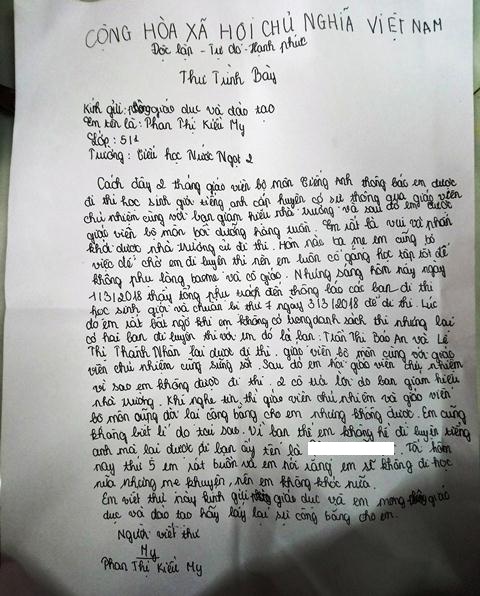 CỘNG HÒA XÃ HỘI CHỦ NGHĨA VIỆT NAM
Độc lập - Tự do - Hạnh phúc
Thư Trình Bày
Kính gửi: phòng giáo dục và đào tạo
Em tên là: Phan Thị Kiều My
Lớp: 5/1
Trường: Tiểu học Nước Ngọt 2
Cách đây 2 tháng giáo viên bộ môn Tiếng Anh thông báo em được
đi thi học sinh giỏi tiếng anh cấp huyện có sự thông qua giáo viên
chủ nhiệm cùng với ban giám hiệu nhà trường và sau đó em được
giáo viên bộ môn bồi dưỡng hàng tuần. Em rất là vui và phấn
khởi được nhà trường cử đi thi. Hơn nữa ba mẹ em cũng bỏ
việc để chở em đi luyện thi nên em luôn cố gắng học tập tốt để
không phụ lòng ba mẹ và cô giáo. Nhưng sáng hôm nay ngày
1/3/2018 thầy tổng phụ trách đến thông báo các bạn đi thi
học sinh giỏi và chuẩn bị thứ 7 ngày 3/3/2018 để đi thi. Lúc
đó em rất bất ngờ khi em không có trong danh sách thi nhưng lại
có hai bạn đi luyện thi với em đó là bạn: Trần Thị Bảo An và Lê
Thị Thanh Nhàn lại được đi thi. giáo viên bộ môn cùng với giáo
viên chủ nhiệm cũng sửng sốt. Sau đó em hỏi giáo viên chủ nhiệm
vì sao em không được đi thi. 2 cô trả lời do ban giám hiệu
nhà trường. Khi nghe tin thì giáo viên chủ nhiệm và giáo viên
bộ môn cũng đòi lại công bằng cho em nhưng không được. Em cũng
không biết lí do tại sao. Vì bạn thế em không hề đi luyện tiếng
anh mà lại được đi bạn ấy tên là Từ hôm
nay thứ 5 em rất buồn và em nói rằng em sẽ không đi học
nữa nhưng mẹ khuyên, nên em không khóc nữa.
Em viết thư này kính gửi phòng giáo dục và em mong phòng giáo
dục và đào tạo hãy lấy lại sự công bằng cho em.
Người viết thư
My
Phan Thị Kiều My